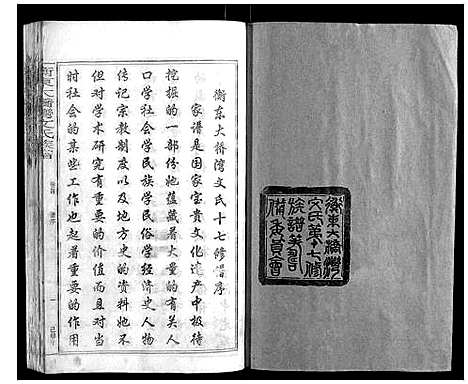 衡东大桥湾文氏十七修谱序
家谱是国家宝贵文化遗产中极待
挖掘的一部份她蕴藏着大量的有关人
口学社会学民族学民俗学经济史人物
传记宗教制度以及地方史的资料她不
但对学术研究有重大的价值而且对当
时社会的某些工作也起着重要的作用
衡东大桥湾
文氏第十七修
族谱
备委员会